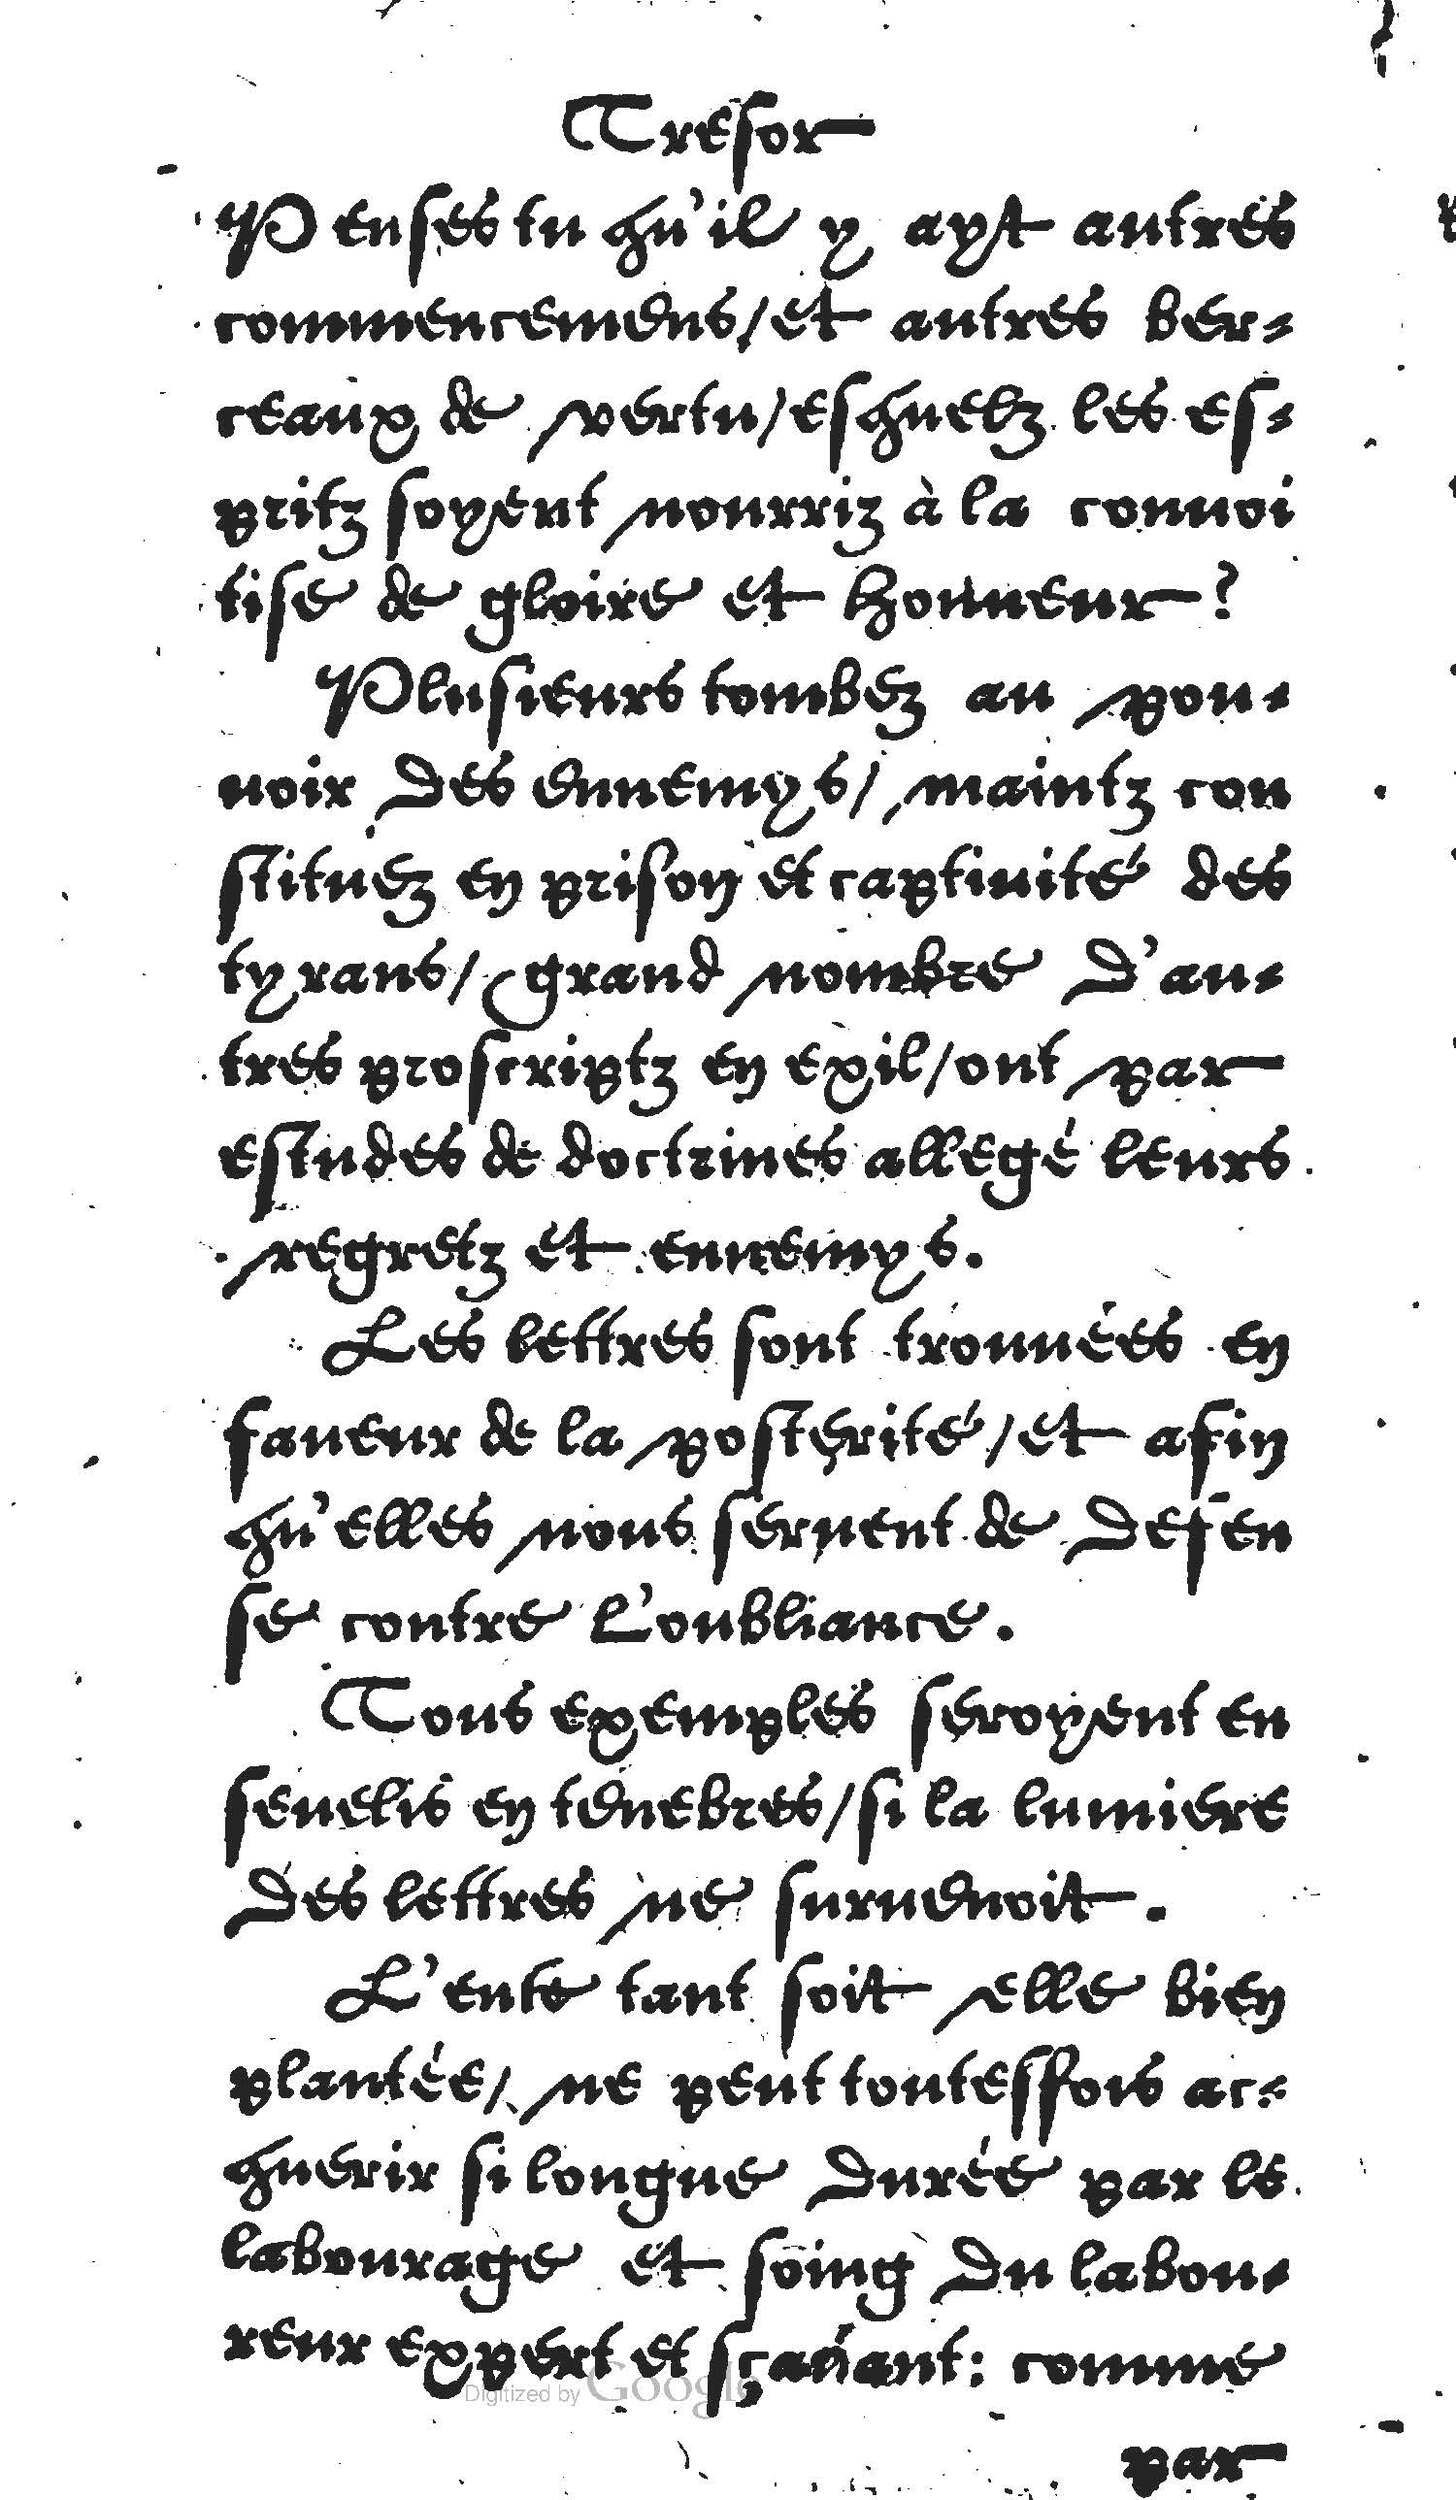 Tresor
Penses tu qu'il y ayt autres
commencemens/et autres ber-
ceaux de vertu/esquelz les es-
pritz soyent nourriz à la conuoi
tise de gloire et honneur?
Plusieurs tombez au pou-
uoir des ennemys/ maintz con
stituéz en prison et captiuité des
tyrans/ grand nombre d'au-
tres proscriptz en exil/ont par
estudes de doctrines allegé leurs
regretz et ennemys.
Les lettres sont trouuées en
faueur de la posterité/et afin
qu'elles nous seruent de defen
se contre l'oubliance.
Tous exemples seroyent en
seuelis en tenebres/si la lumiere
des lettres ne suruenoit.
L'ente tant soit elle bien
plantée/ ne peut toutesfois ac-
querir si longue durée par le
labourage et soing du labou-
reur expert et sçauant: comme
par
Digitized by Google